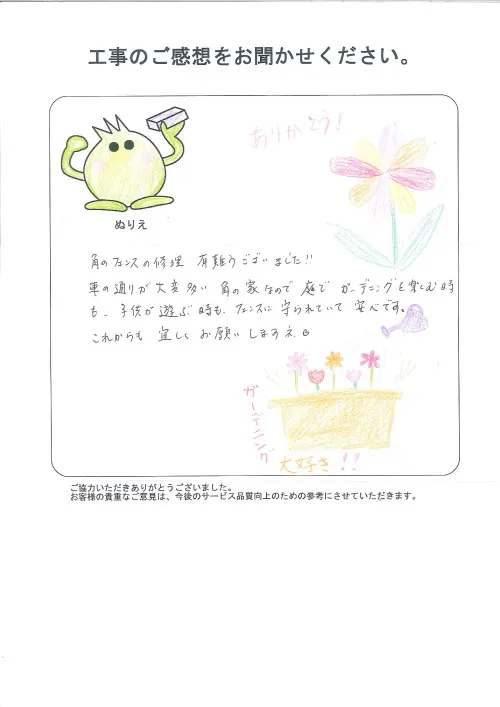 工事のご感想をお聞かせください。
ありがとう!
ぬりえ
角のフェンスの修理 有難うございました!!
車の通りが大変多い 角の家なので 庭で ガーデニングを楽しむ時
も、子供が 遊ぶ 時も、フェンスに 守られていて 安心です。
これからも 宜しく お願い しますネ
ガーデニング
大好き!!
ご協力いただきありがとうございました。
お客様の貴重なご意見は、今後のサービス品質向上のための参考にさせていただきます。